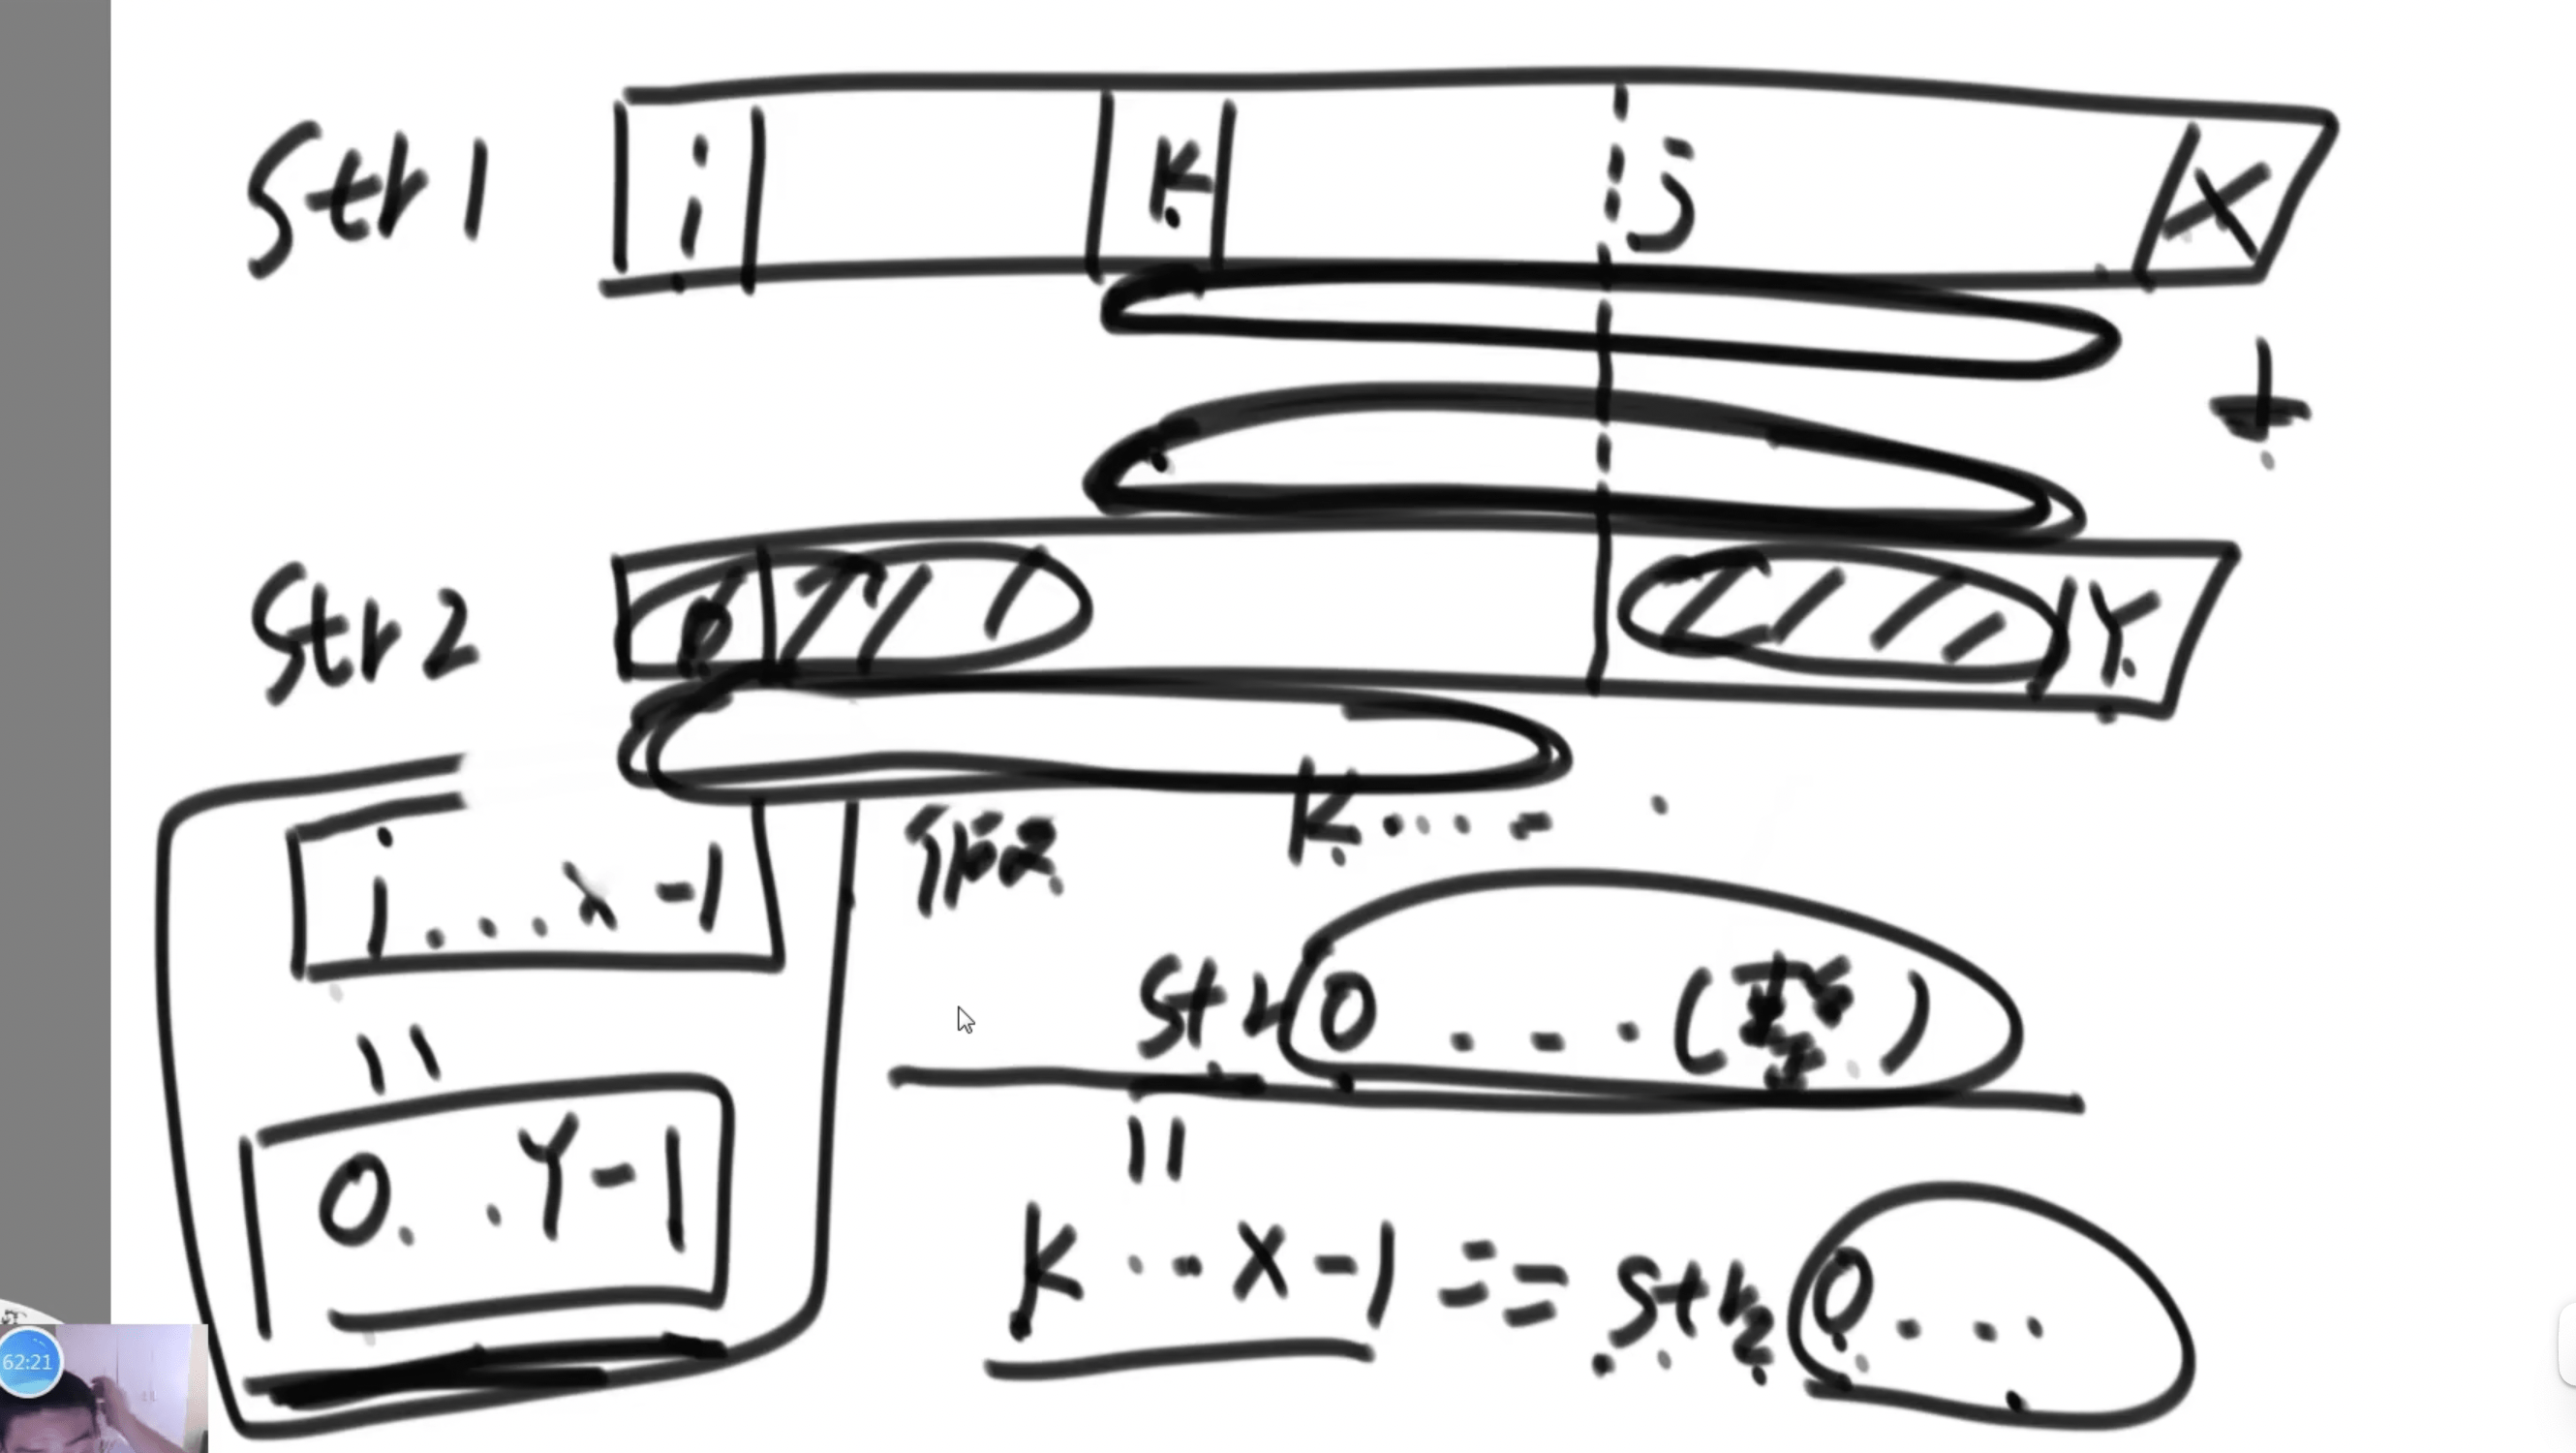 Str1 i K j X
Str2 0 Y
i...x-1
=
0...Y-1
假设 K.....
str2 0....(等长)
=
K...X-1 == Str2 0....
62:21